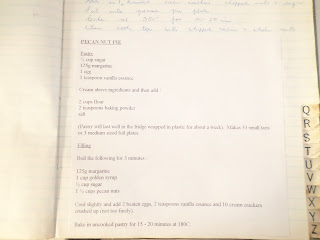 PECAN NUT PIE
Pastry
½ cup sugar
125g margarine
1 egg
1 teaspoon vanilla essence
Cream above ingredients and then add :
2 cups flour
2 teaspoons baking powder
salt
(Pastry will last well in the fridge wrapped in plastic for about a week). Makes 33 small tarts
or 3 medium sized foil plates.
Filling
Boil the following for 3 minutes.
125g margarine
1 cup golden syrup
½ cup sugar
1 ½ cups pecan nuts
Cool slightly and add 2 beaten eggs, 2 teaspoons vanilla essence and 10 cream crackers
crushed up (not too finely).
Bake in uncooked pastry for 15 - 20 minutes at 180C.
Q
R
S
T
U
V
W
X
Y
Z